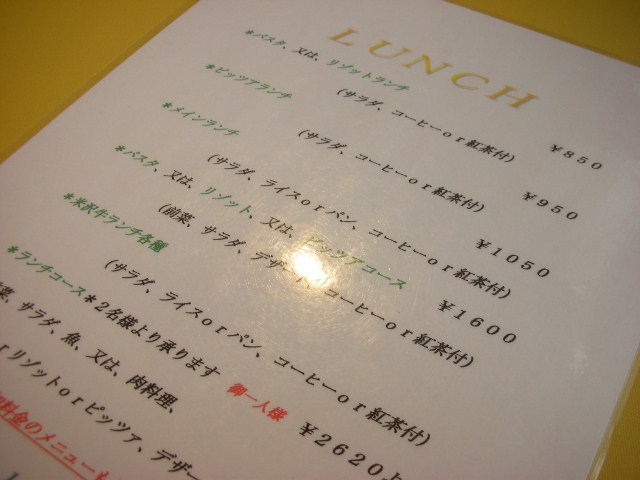 LUNCH
*パスタ、又は、リゾットランチ
(サラダ、コーヒーor紅茶付) ¥850
*ピッツアランチ
(サラダ、コーヒーor紅茶付) ¥950
*メインランチ
(サラダ、ライスorパン、コーヒーor紅茶付) ¥1050
*パスタ、又は、リゾット、又は、ピッツアコース
(前菜、サラダ、デザート、コーヒーor紅茶付) ¥1600
*米沢牛ランチ各種
(サラダ、ライスorパン、コーヒーor紅茶付) ¥2620より
*ランチコース*2名様より承ります 御一人様
菜、サラダ、魚、又は、肉料理、
rリゾットorピッツァ、デザー
料金のメニューも